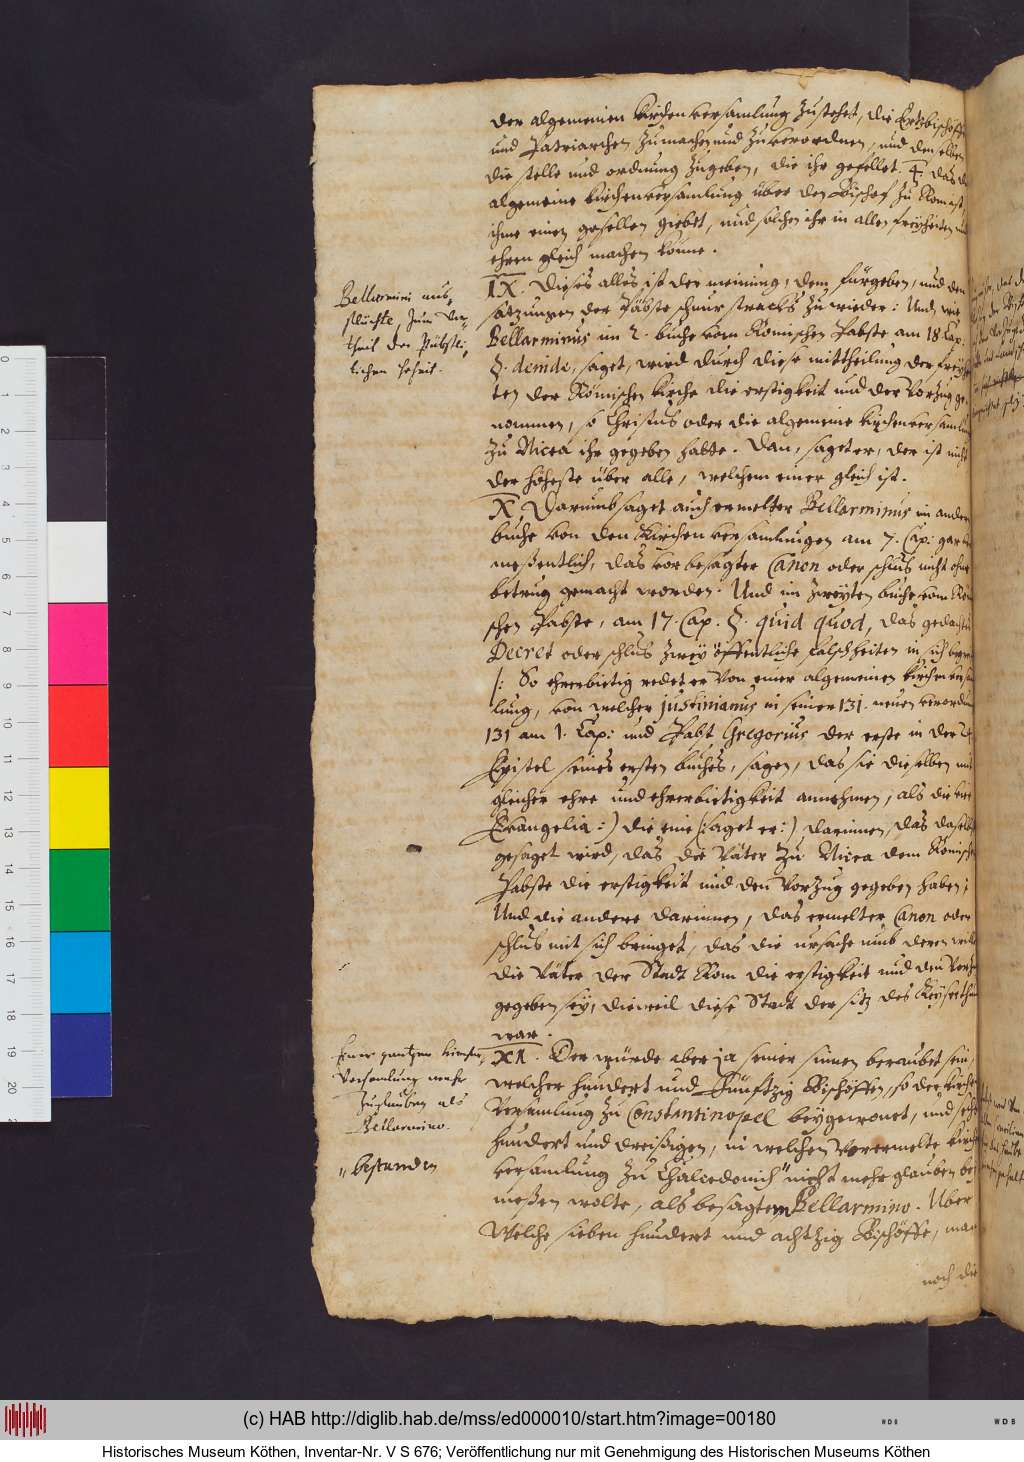 der algemeinen Kirchenversamlung zustehet, die Ertzbischöffe
und Patriarchen zumachen und zuverordnen, und denselben
die stelle und ordnung zugeben, die ihr gefellet. 4. das die
algemeine kirchenversamlung über den Bischof zu Rom ist,
ihme einen gesellen giebet, und solchen ihr in allen freyheiten und
ehren gleich machen könne.
IX. Dieses alles ist der meinung, dem fürgeben, und den
satzungen der Päbste schnurstracks zu wieder: Und, wie
Bellarminus im 2. buche vom Römischen Pabste am 18 Cap.
§. deinde, saget, wird durch diese mittheilung der freyhei
ten der Römischen kirche die erstigkeit und der Vorzug ge,
nommen, so Christus oder die algemeine kirchenversamlung
zu Nicea ihr gegeben hatte. Dan, saget er, der ist nicht
der höheste über alle, welchem einer gleich ist.
X. Darumb saget auch ermelter Bellarminus im andern
buche von den Kirchenversamlungen am 7. Cap: gar
meßentlich, das vorbesagter Canon oder schlus nicht ohne
betrug gemacht worden. Und im zweyten buche vom Römi
schen Pabste, am 17. Cap. §. quid quod, das gedachtes
Decret oder schlus zwey öffentliche falschheiten in sich
/: So ehrerbietig redet er von einer algemeinen kirchenversam
lung, von welcher Justinianus in seiner 131. neuen verordnung
131 am 1. Cap: und Pabst Gregorius der erste in der 24
Epistel seines ersten buches, sagen, das sie dieselben mit
gleicher ehre und ehrerbietigkeit annehmen, als die vier
Evangelia :) die eine (: saget er :) darinnen, das daselbst
gesaget wird, das die Väter zu Nicea dem Römischen
Pabste die erstigkeit und den Vorzug gegeben haben;
Und die andere darinnen, das ermelter Canon oder
schlus mit sich bringet, das die ursache umb deren willen
die Väter der Stadt Rom die erstigkeit und den Vorzug
gegeben sey, dieweil diese Stadt der sitz des Keyserthums
war.
XI. Der würde aber ja seiner sinnen beraubet sein,
welcher hundert und Funftzig Bischöffen, so der kirchen
Versamlung zu Constantinopel beygewonet, und sechs
hundert und dreißigen, in welchen Vorermelte kirchen
versamlung zu Chalcedonich " nicht mehr glauben bey
meßen wolte, als besagtem Bellarmino. Uber
Welche sieben hundert und achtzig Bischöffe, man
noch die
Bellarmini aus,
flüchte, zum Vor,
theil der Päbstli,
lichen hoheit.
Einer gantzen kirchen,
Versamlung mehr
Zuglauben als
Bellarmino.
" bestunden
(c) HAB http://diglib.hab.de/mss/ed000010/start.htm?image=00180
Historisches Museum Köthen, Inventar-Nr. V S 676; Veröffentlichung nur mit Genehmigung des Historischen Museums Köthen